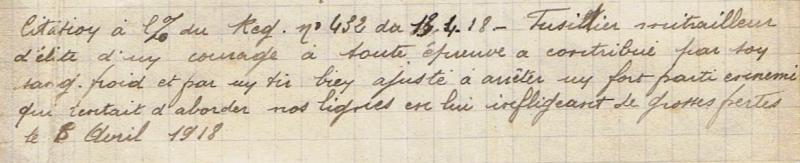 Citation à l'o/ du Reg. n° 432 du 13.4.18 - Fusillier mitrailleur
d'élite d'un courage à toute épreuve a contribué par son
sang. froid et par un tir bien ajusté à arrêter un fort parti ennemi
qui tentait d'aborder nos lignes en lui infligeant de grosses pertes
le 8 Avril 1918